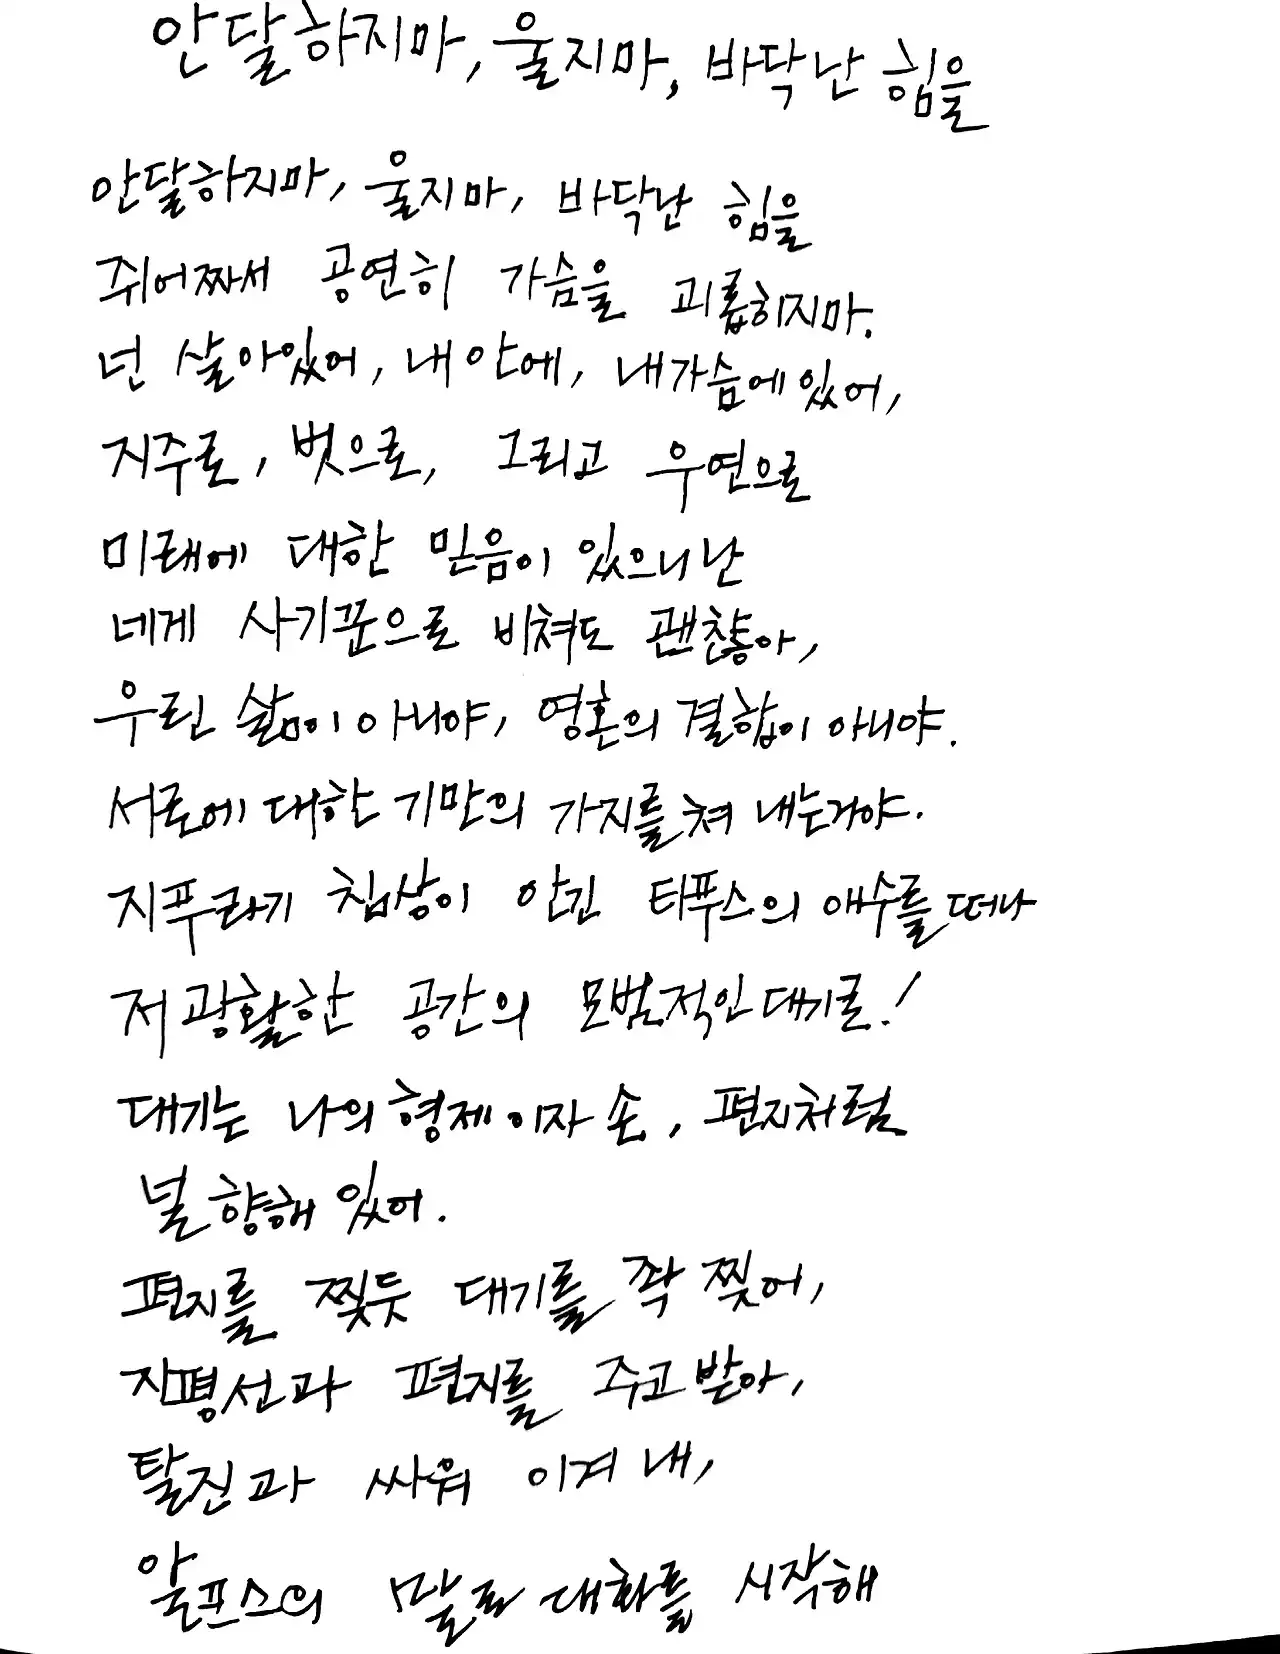 안달하지마, 울지마, 바닥난 힘을
안달하지마, 울지마, 바닥난 힘을
쥐어짜서 공연히 가슴을 괴롭히지마.
넌 살아있어, 내 안에, 내가슴에있어,
지주로, 벗으로, 그리고 우연으로
미래에 대한 믿음이 있으니 난
네게 사기꾼으로 비쳐도 괜찮아,
우린 삶이 아니야, 영혼의 결합이 아니야.
서로에 대한 기만의 가지를 쳐 내는거야.
지푸라기 침상이 안긴 티푸스의 애수를 떠나
저 광활한 공간의 모범적인 대기로!
대기는 나의 형제이자 손, 편지처럼
널 향해 있어.
편지를 찢듯 대기를 쫙 찢어,
지평선과 편지를 주고 받아,
탈진과 싸워 이겨 내,
알프스의 말로 대화를 시작해